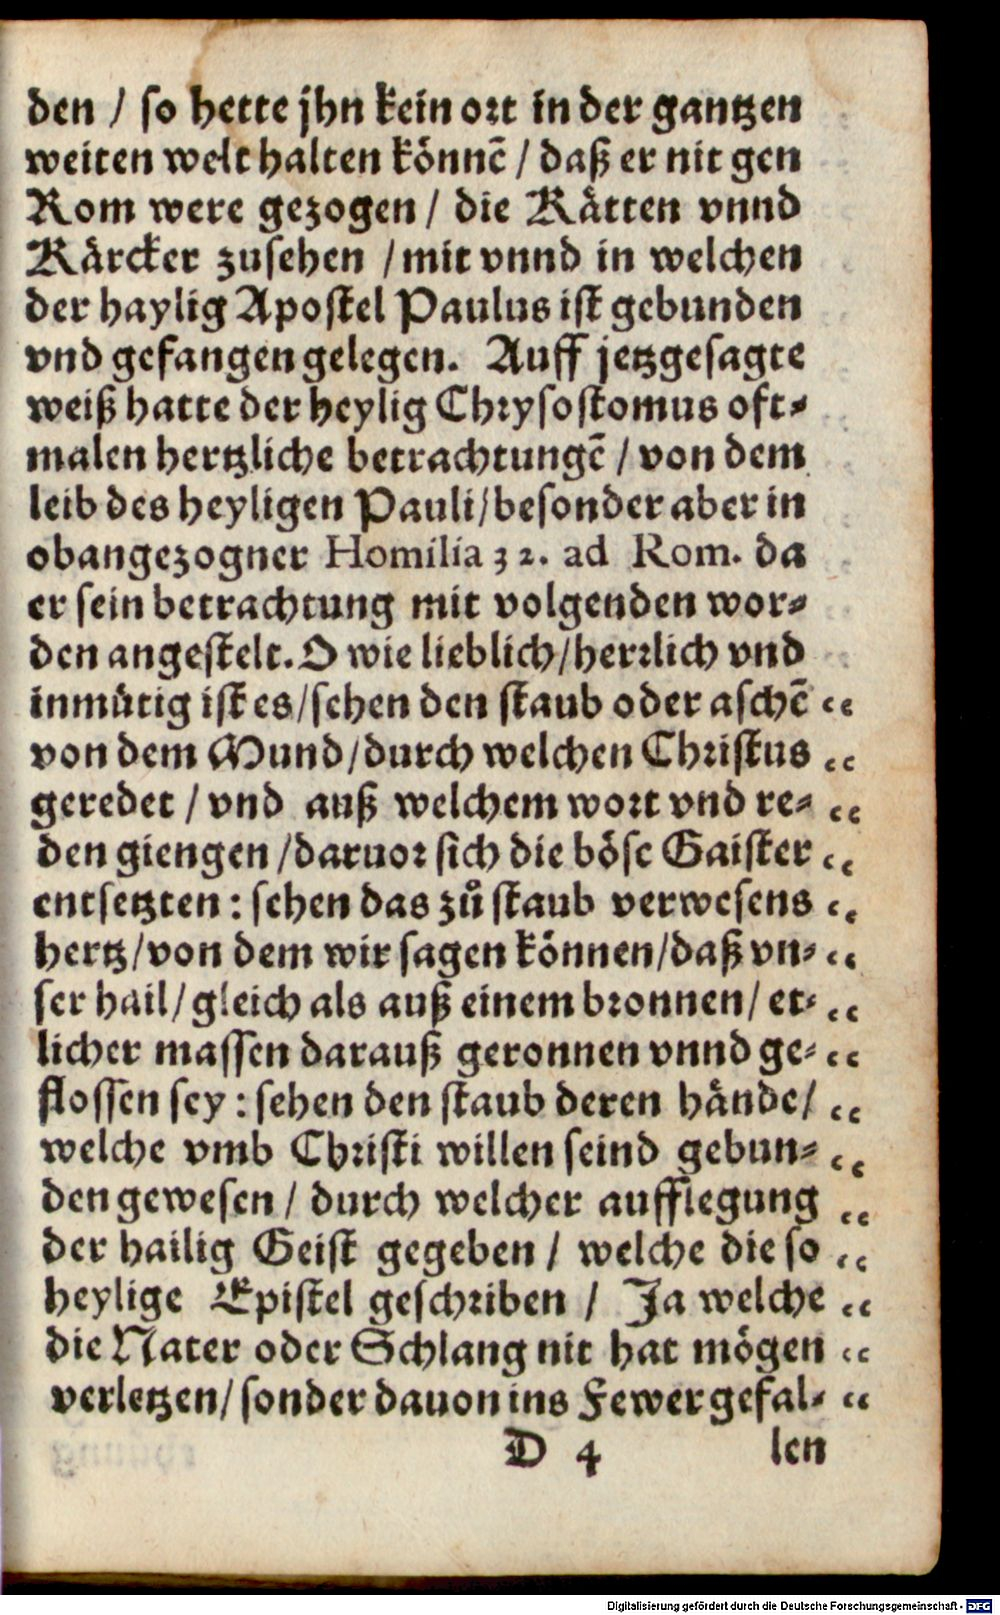 den / so hette jhn kein ort in der gantzen
weiten welt halten könnē / daß er nit gen
Rom were gezogen / die Kätten vnnd
Kärcker zusehen / mit vnnd in welchen
der haylig Apostel Paulus ist gebunden
vnd gefangen gelegen. Auff jetzgesagte
weiß hatte der heylig Chrysostomus oft⸗
malen hertzliche betrachtungē / von dem
leib des heyligen Pauli/besonder aber in
obangezogner Homilia 32. ad Rom. da
er sein betrachtung mit volgenden wor⸗
den angestelt. O wie lieblich/herrlich vnd
inmütig ist es/sehen den staub oder aschē “
von dem Mund/durch welchen Christus “
geredet / vnd auß welchem wort vnd re⸗ “
den giengen /daruor sich die böse Gaister “
entsetzten : sehen das zů staub verwesens “
hertz/von dem wir sagen können/daß vn⸗ “
ser hail/gleich als auß einem bronnen/ et⸗ “
licher massen darauß geronnen vnnd ge⸗ “
flossen sey : sehen den staub deren hände/ “
welche vmb Christi willen seind gebun⸗ “
den gewesen / durch welcher aufflegung “
der hailig Geist gegeben / welche die so “
heylige Epistel geschriben / Ja welche “
die Nater oder Schlang nit hat mögen “
verletzen/sonder dauon ins Fewer gefal⸗ “
D 4 len
Digitalisierung gefördert durch die Deutsche Forschungsgemeinschaft - DFG